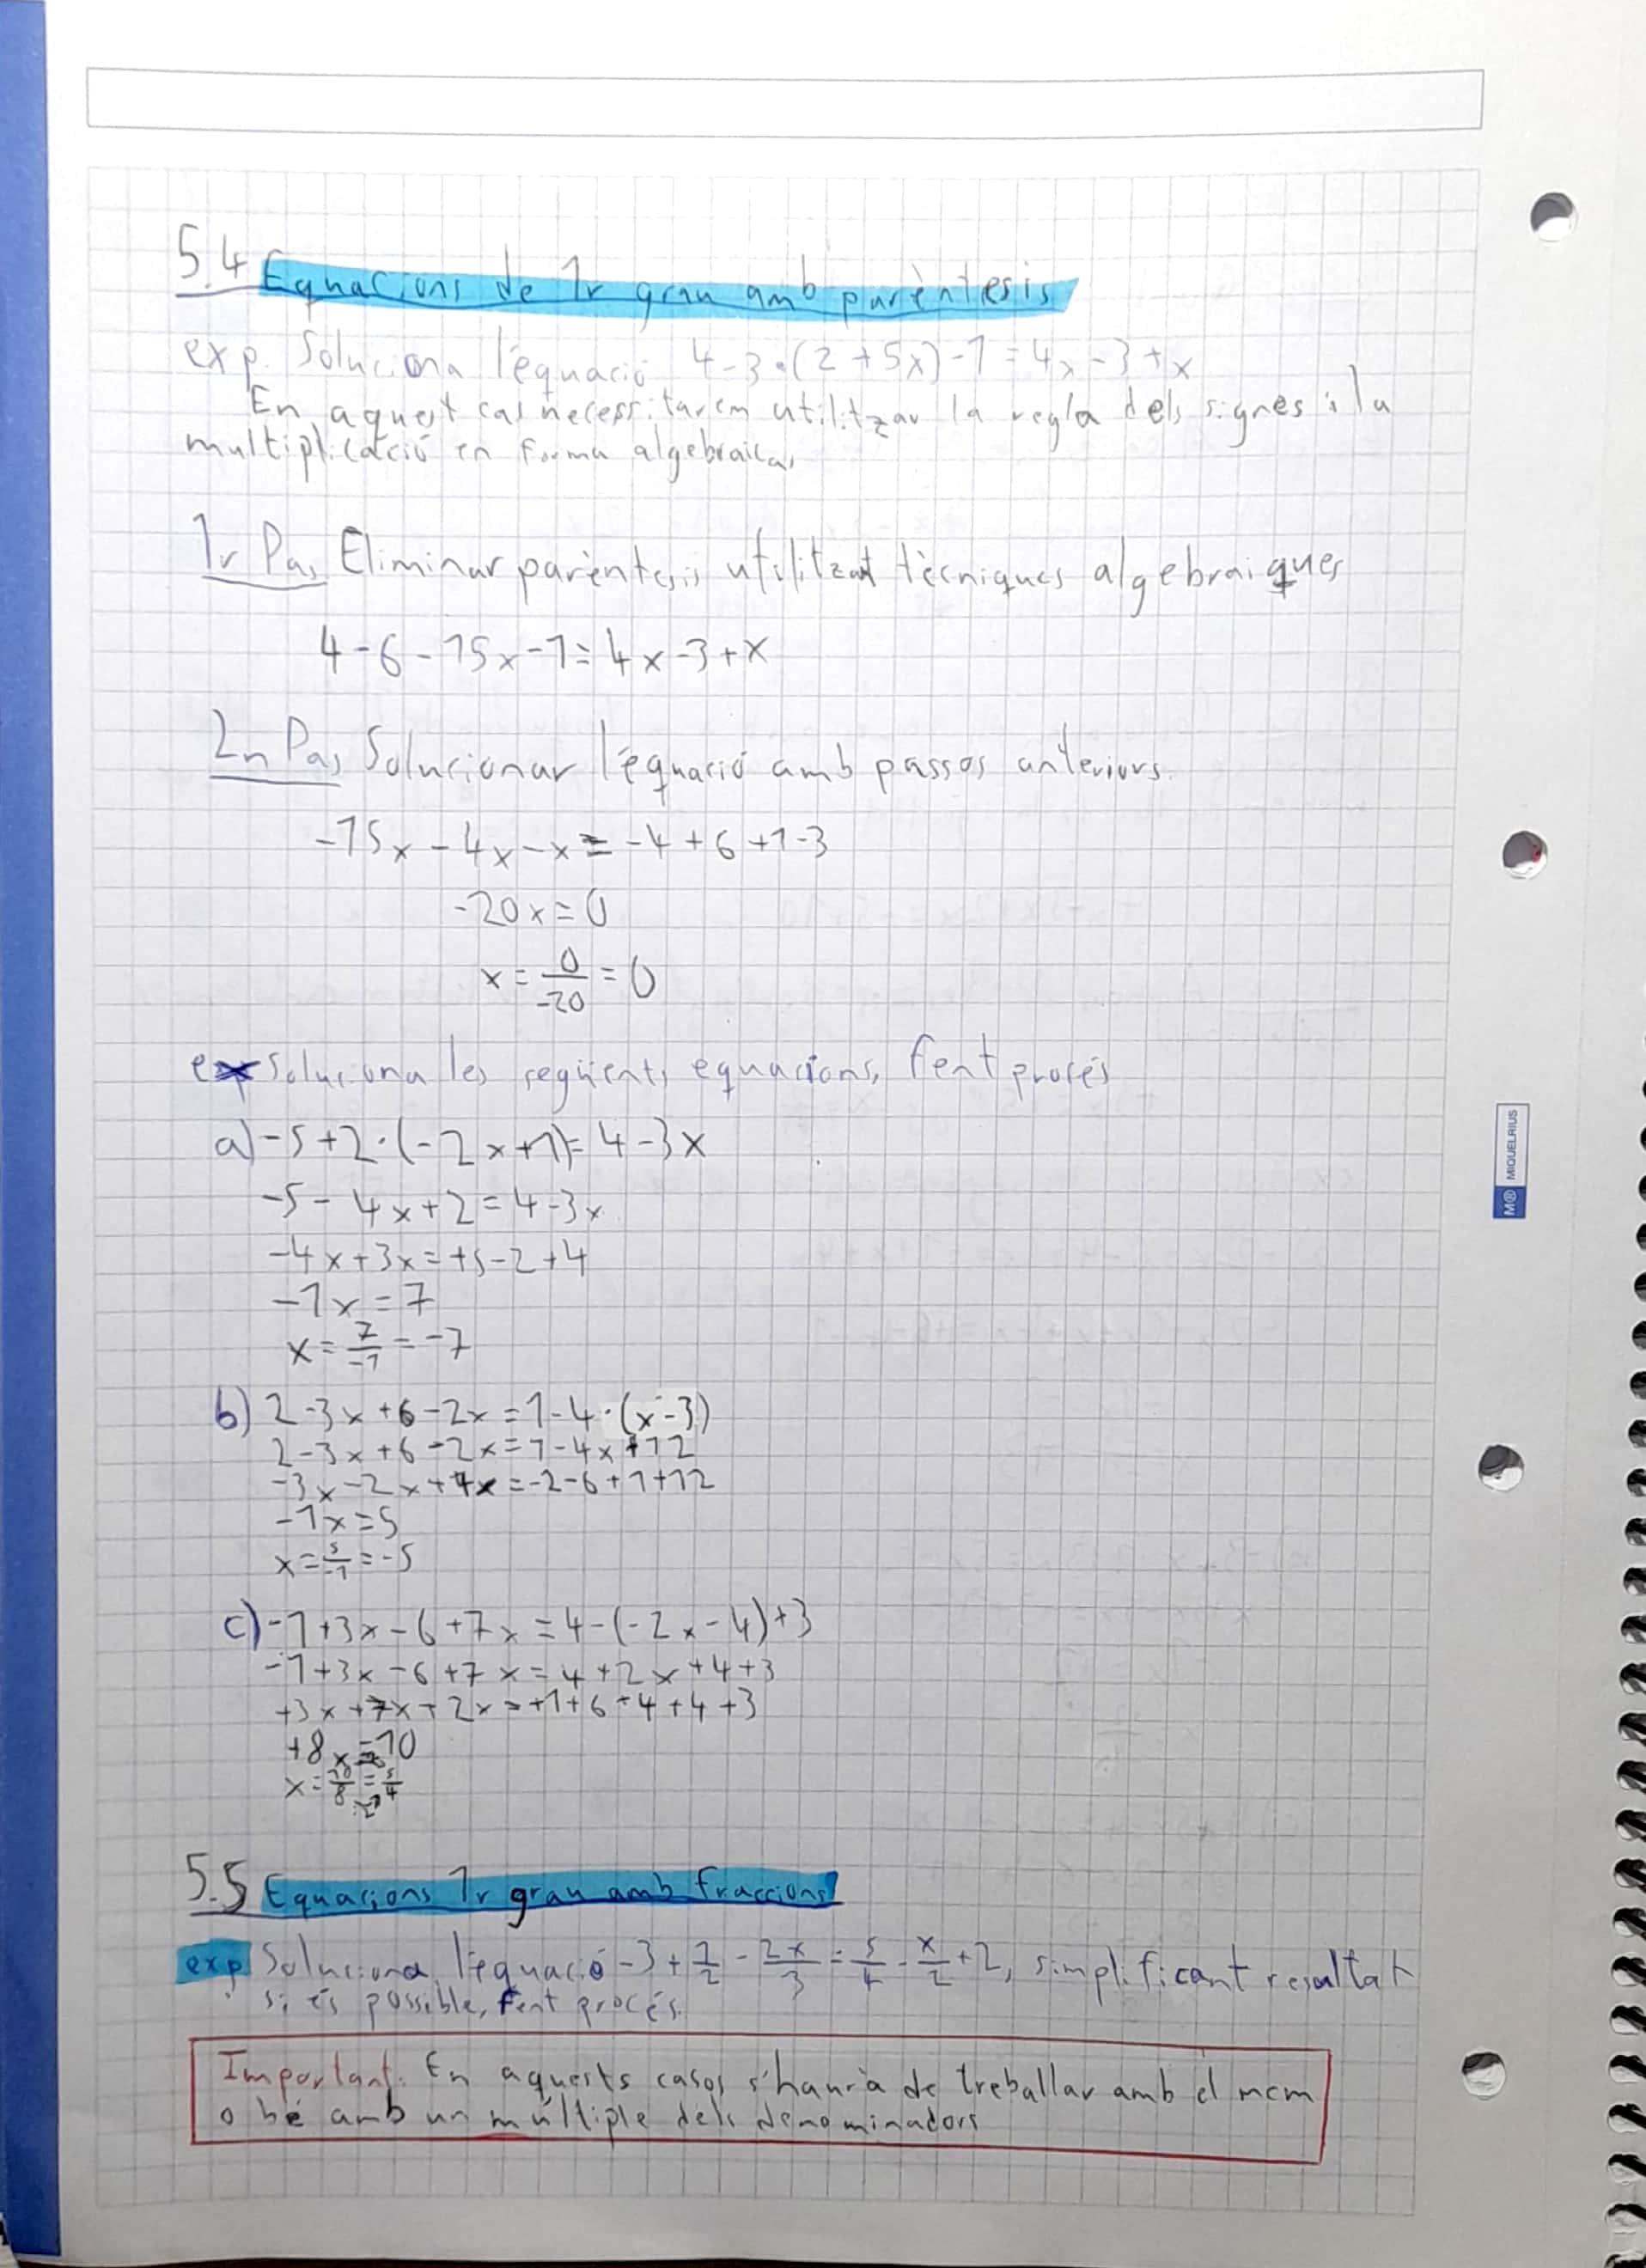 5.4 Equacions de 1r grau amb parèntesis
exp. Soluciona l'equació 4-3·(2+5x)-1=4x-3+x
En aquest cas necessitarem utilitzar la regla dels signes i la
multiplicació en forma algebraica,
1r Pas Eliminar parèntesis utilitzat tècniques algebraiques
4-6-15x-1=4x-3+x
2n Pas Solucionar l'equació amb passos anteriors.
-15x-4x-x=-4+6+1-3
-20x=0
x=0/-20=0
Soluciona les següents equacions, fent procés
a)-5+2·(-2x+1)=4-3x
-5-4x+2=4-3x
-4x+3x=+5-2+4
-1x=7
x=7/-1=-7
b) 2-3x+6-2x=1-4·(x-3)
2-3x+6-2x=1-4x+12
-3x-2x+4x=-2-6+1+12
-1x=5
x=5/-1=-5
c)-1+3x-6+7x=4-(-2x-4)+3
-1+3x-6+7x=4+2x+4+3
+3x+7x+2x=+1+6+4+4+3
+8x=10
x=10/8=5/4
5.5 Equacions 1r grau amb fraccions
exp Soluciona l'equació -3+1/2-2x/3=5/4-x/2+2, simplificant resultat
si és possible, fent procés.
Important: En aquests casos s'haurà de treballar amb el mcm
o bé amb un múltiple dels denominadors
M® MIQUELRIUS